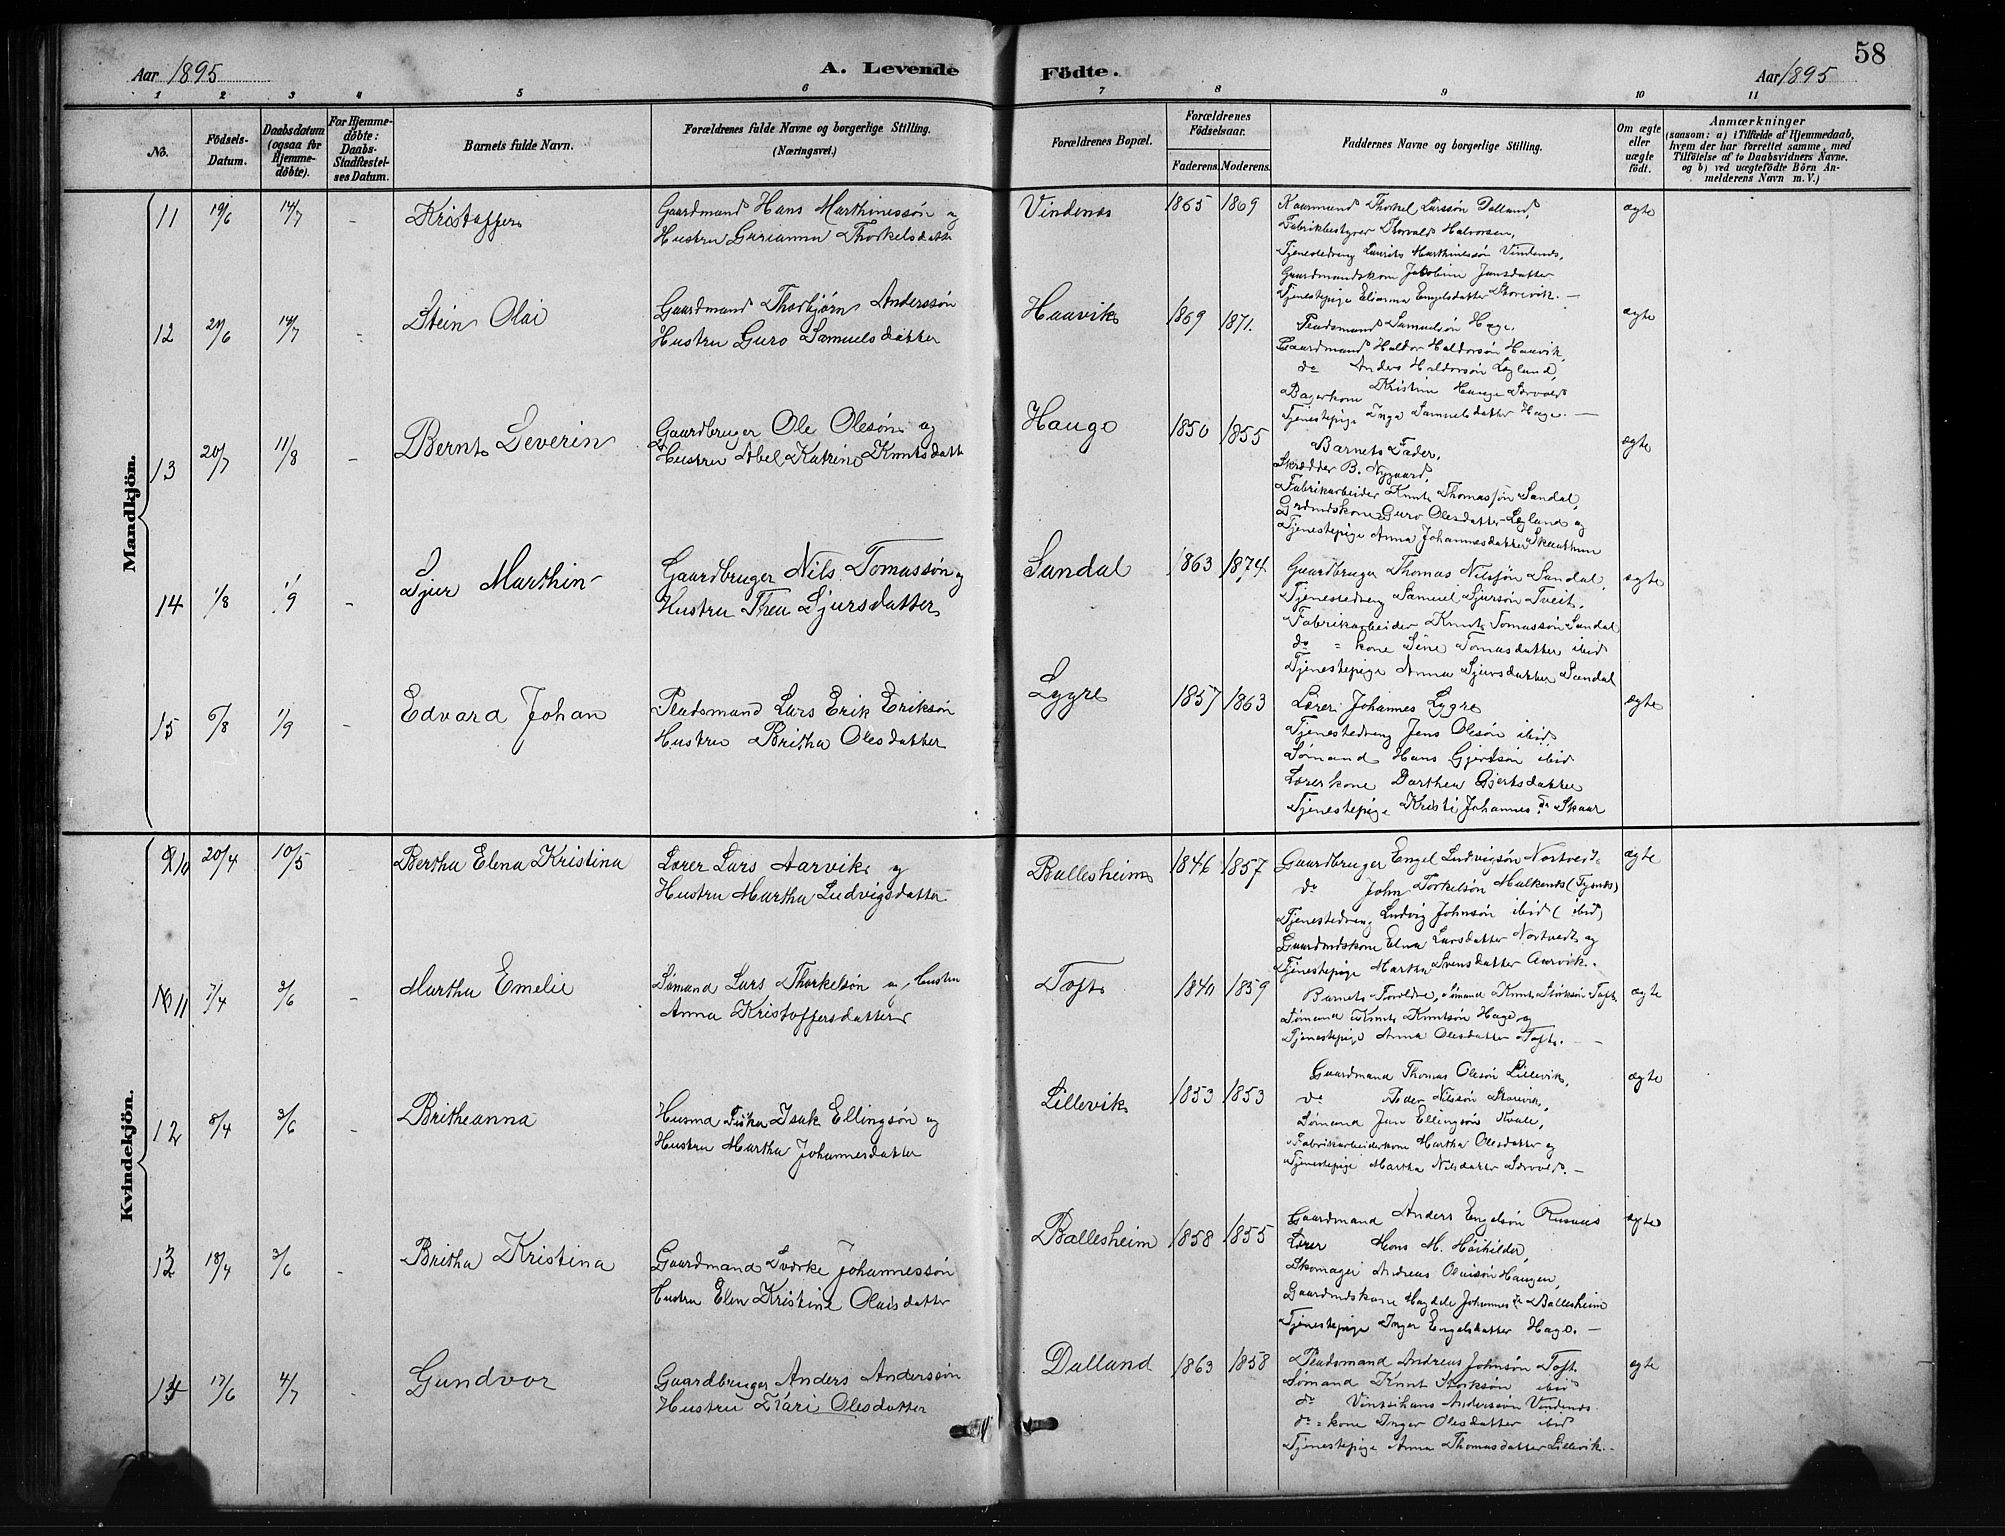 Aar 1895
A. Levende Födte.
Aar 1895
58
1 2 3 4 5 6 7 8 9 10 11
No.
Födsels-
Datum.
Daabsdatum
(ogsaa for
Hjemme-
döbte).
For Hjemme-
döbte:
Daabs-
Stadfæstel-
ses Datum.
Barnets fulde Navn.
Forældrenes fulde Navne og borgerlige Stilling.
(Næringsvei.)
Forældrenes Bopæl.
Forældrenes
Födselsaar.
Faderens. Moderens.
Faddernes Navne og borgerlige Stilling.
Om ægte
eller
uægte
födt.
Anmærkninger
(saasom: a) i Tilfælde af Hjemmedaab,
hvem der har forrettet samme, med
Tilföielse af to Daabsvidners Navne.
og b) ved uægtefödte Börn An-
melderens Navn m. V.)
Mandkjön.
11 19/6 14/7 - Kristoffer
Gaardmand Hans Marthinessön og
Hustru Gurianna Thorkelsdatte
Vindenes 1865 1869
Kaarmand Thorkel Larssön Dalland,
Fabrikbestyrer Thorvald Halvorsen,
Tjenestedreng Laurits Marthinessön Vindenes,
Gaardmandskone Jakobine Jansdatter
Tjenestepige Elianna Engelsdatter Storevik. -
ægte
12 21/6 14/7 - Stein Olai
Gaardmand Thorbjörn Anderssön
Hustru Guro Samuelsdatter
Haavik 1869 1871.
Pladsmand Samuelsön Hage,
Gaardmand Haldor Haldorsön Haavik,
do Anders Haldorsön Legland,
Bagerkone Kristine Hauge
Tjenestepige Inga Samuelsdatter Hage. -
ægte
13 20/7 11/8 - Bernt Severin
Gaardbruger Ole Olesön og
Hustru Abel Katrine Knutsdatt
Hauge 1850 1855
Barnets Fader,
Skrædder B. Nygaard,
Fabrikarbeider Knut Thomassön Sandal,
Grdmdskone Guro Olesdatter Legland og
Tjenestepige Anna Johannesdatter Skarthun
ægte
14 1/8 1/9 - Sjur Marthin
Gaardbruger Nils Tomassön og
Hustru Thea Sjursdatter
Sandal 1863 1874
Gaardbruger Thomas Nilssön Sandal,
Tjenestedreng Samuel Sjursön Tveit,
Fabrikarbeider Knut Tomassön Sandal
do " kone Sine Tomasdatter ibid
Tjenestepige Anna Sjursdatter Sandal
ægte
15 6/8 1/9 - Edvard Johan
Pladsmand Lars Erik Eriksön
Hustru Britha Olesdatter
Lygre 1857 1863
Lærer Johannes Lygre
Tjenestedreng Jens Olesön ibid,
Sömand Hans Gjertsön ibid
Lærerkone Dorthea Gjertsdatter
Tjenestepige Kristi Johannes dr Skaar
ægte
Kvindekjön.
10 20/4 10/5 Bertha Elena Kristina
Lærer Lars Aarvik og
Hustru Martha Ludvigsdatter
Ballesheim 1846 1857
Gaardbruger Engel Ludvigsön Nortvedt
do John Torkelsön Malkenes (Tysnes)
Tjenestedreng Ludvig Johnsön ibid (ibid)
Gaardmdskone Elna Larsdatter Nortvedt og
Tjenestepige Martha Svensdatter Aarvik. -
ægte
No 11 7/4 3/6 - Martha Emelie
Sömand Lars Thorkelsön og Hustru
Anna Kristoffersdatter
Toft 1840 1859
Barnets Foreldre, Sömand Knut Störksön Toft
Sömand Knut Knutsön Hage og
Tjenestepige Anna Olesdatter Toft. -
ægte
12 8/4 3/6 - Britheanna
Husmd Fisker Isak Ellingsön og
Hustru Martha Johannesdatter
Lillevik 1853 1853
Gaardmand Thomas Olesön Lillevik,
do Peder Nilssön Storevik,
Sömand Jan Ellingsön Kvale,
Fabrikarbeiderkone Martha Olesdatter og
Tjenestepige Martha Nilsdatter -
ægte
13 18/4 3/6 - Britha Kristina
Gaardmand Sværke Johannessön
Hustru Elen Kristine Olaisdatter
Ballesheim 1858 1855
Gaardmand Anders Engelsön
Lærer Hans M. Höihilder,
Skomager Andreas Olaisön Haugen,
Gaardmdskone Magdele Johannes dr Ballesheim
Tjenestepige Inger Engelsdatter Hage. -
ægte
14 17/6 4/7 - Gundvor
Gaardbruger Anders Anderssön
Hustru Kari Olesdatter
Dalland 1863 1858
Pladsmand Andreas Johnsön Toft
Sömand Knut Störksön ibid
do Vintsihans Andersön Vindenes
do " kone Inger Olesdatter ibid
Tjenestepige Anna Thomasdatter Lillevik. -
ægte